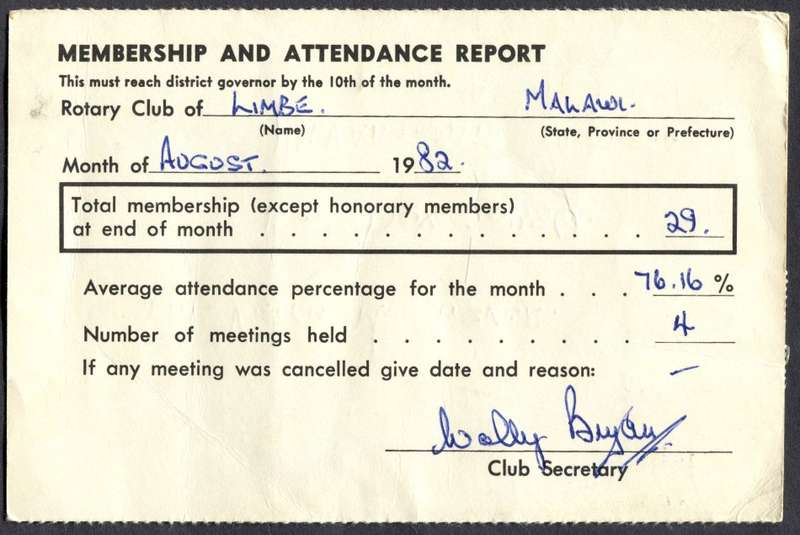 MEMBERSHIP AND ATTENDANCE REPORT
This must reach district governor by the 10th of the month.
Rotary Club of LIMBE. MALAWI.
(Name) (State, Province or Prefecture)
Month of AUGUST. 1982.
Total membership (except honorary members)
at end of month . . . . . . . . . . . . . 29.
Average attendance percentage for the month . . . 76.16 %
Number of meetings held . . . . . . . . . 4
If any meeting was cancelled give date and reason: —
Wally Bryan
Club Secretary